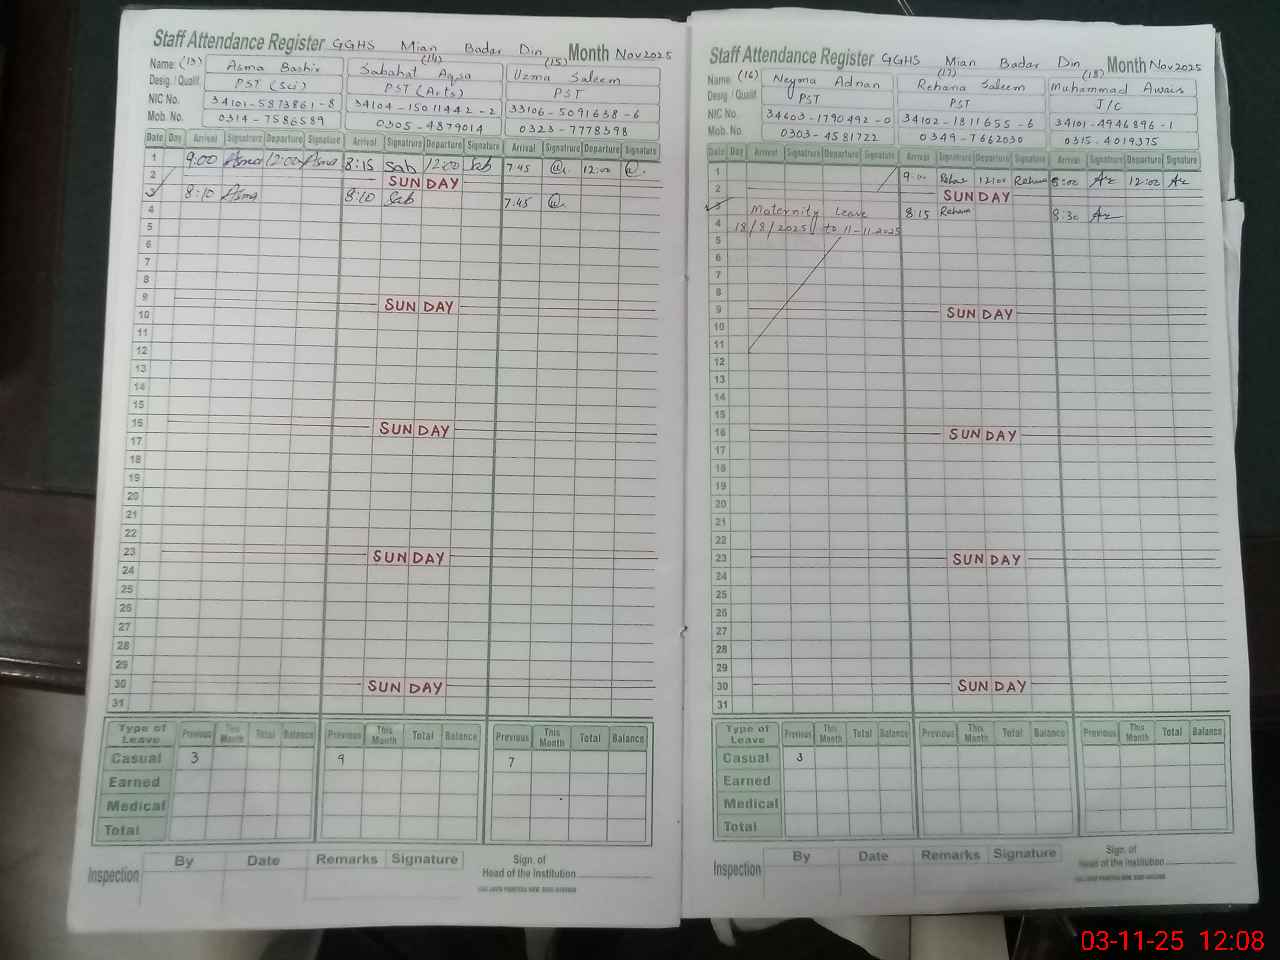 Staff Attendance Register GGHS Mian Badar Din Month Nov 2025
Name: (13) Asma Bashir (14) Sabahat Aqsa (15) Uzma Saleem
Desig / Qualif. PST (Sci) PST (Arts) PST
NIC No. 34101-5873861-8 34104-1501442-2 33106-5091638-6
Mob. No. 0314-7586589 0305-4879014 0323-7778398
Date Day Arrival Signatrure Departure Signature Arrival Signatrure Departure Signature Arrival Signatrure Departure Signature
1 9:00 Asma 12:00 Asma 8:15 Sab 12:00 Sab 7:45 12:00
2 SUNDAY
3 8:10 Asma 8:10 Sab 7:45
4
5
6
7
8
9 SUNDAY
10
11
12
13
14
15
16 SUNDAY
17
18
19
20
21
22
23 SUNDAY
24
25
26
27
28
29
30 SUNDAY
31
Type of Leave Previous This Month Total Balance Previous This Month Total Balance Previous This Month Total Balance
Casual 3 9 7
Earned
Medical
Total
Inspection By Date Remarks Signature Sign. of Head of the Institution
Staff Attendance Register GGHS Mian Badar Din Month Nov 2025
Name: (16) Neyma Adnan (17) Rehana Saleem (18) Muhammad Awais
Desig / Qualif. PST PST J/C
NIC No. 34603-1790492-0 34102-1811655-6 34101-4946896-1
Mob. No. 0303-4581722 0349-7662030 0315-4019375
Date Day Arrival Signatrure Departure Signature Arrival Signatrure Departure Signature Arrival Signatrure Departure Signature
1 9:00 Rehana 12:00 Rehana 8:00 Az 12:00 Az
2 SUNDAY
3 Maternity Leave 8:15 Rehana 8:30 Az
4 18/8/2025 to 11-11-2025
5
6
7
8
9 SUNDAY
10
11
12
13
14
15
16 SUNDAY
17
18
19
20
21
22
23 SUNDAY
24
25
26
27
28
29
30 SUNDAY
31
Type of Leave Previous This Month Total Balance Previous This Month Total Balance Previous This Month Total Balance
Casual 3
Earned
Medical
Total
Inspection By Date Remarks Signature Sign. of Head of the Institution
03-11-25 12:08